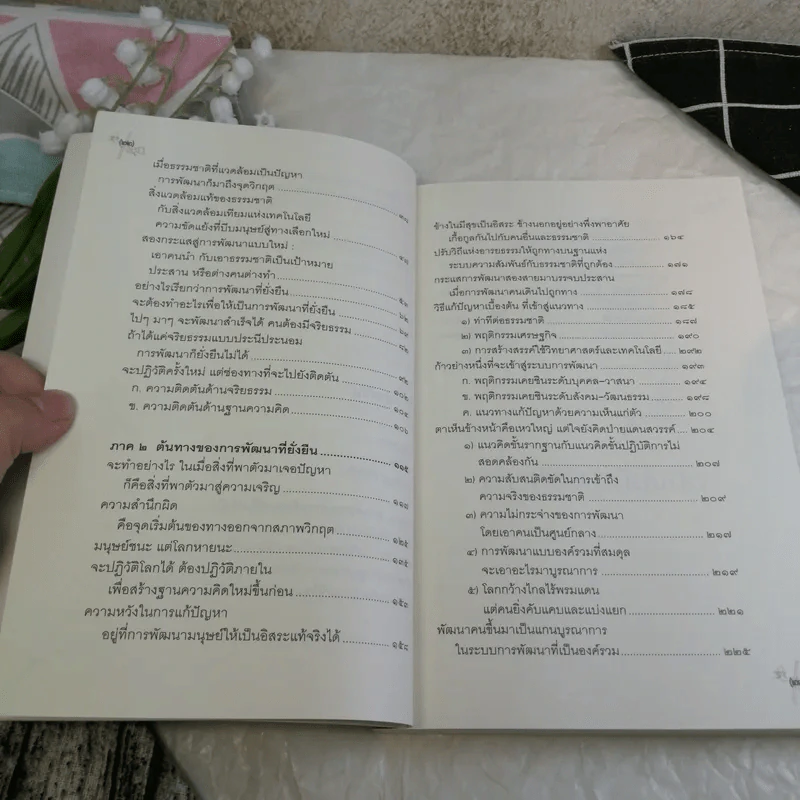 เมื่อธรรมชาติที่แวดล้อมเป็นปัญหา
การพัฒนาก็มาถึงจุดวิกฤต
สิ่งแวดล้อมแท้ของธรรมชาติ
กับสิ่งแวดล้อมเทียมแห่งเทคโนโลยี
ความขัดแย้งที่บีบมนุษย์สู่ทางเลือกใหม่
สองกระแสสู่การพัฒนาแบบใหม่ :
เอาคนนำ กับเอาธรรมชาติเป็นเป้าหมาย
ประสาน หรือต่างคนต่างทำ
อย่างไรเรียกว่าการพัฒนาที่ยั่งยืน
จะต้องทำอะไรเพื่อให้เป็นการพัฒนาที่ยั่งยืน
ไปๆ มาๆ จะพัฒนาสำเร็จได้ คนต้องมีจริยธรรม
ถ้าได้แค่จริยธรรมแบบประนีประนอม
การพัฒนาก็ยั่งยืนไม่ได้
จะปฏิวัติครั้งใหม่ แต่ช่องทางที่จะไปยังติดตัน
ก. ความติดตันด้านจริยธรรม
ข. ความติดตันด้านฐานความคิด ๑๐๖
ภาค ๒ ต้นทางของการพัฒนาที่ยั่งยืน ๑๑๕
จะทำอย่างไร ในเมื่อสิ่งที่พาตัวมาเจอปัญหา
ก็คือสิ่งที่พาตัวมาสู่ความเจริญ ๑๑๘
ความสำนึกผิด
คือจุดเริ่มต้นของทางออกจากสภาพวิกฤต ๑๒๕
มนุษย์ชนะ แต่โลกหายนะ ๑๓๕
จะปฏิวัติโลกได้ ต้องปฏิวัติภายใน
เพื่อสร้างฐานความคิดใหม่ขึ้นก่อน ๑๕๓
ความหวังในการแก้ปัญหา
อยู่ที่การพัฒนามนุษย์ให้เป็นอิสระแท้จริงได้ ๑๕๘
ข้างในมีสุขเป็นอิสระ ข้างนอกอยู่อย่างพึ่งพาอาศัย
เกื้อกูลกันไปกับคนอื่นและธรรมชาติ ๑๖๔
ปรับวิถีแห่งอารยธรรมให้ถูกทางบนฐานแห่ง
ระบบความสัมพันธ์กับธรรมชาติที่ถูกต้อง ๑๗๑
กระแสการพัฒนาสองสายมาบรรจบประสาน
เมื่อการพัฒนาคนเดินไปถูกทาง ๑๗๘
วิธีแก้ปัญหาเบื้องต้น ที่เข้าสู่แนวทาง ๑๘๕
๑) ท่าทีต่อธรรมชาติ ๑๘๗
๒) พฤติกรรมเศรษฐกิจ ๑๙๐
๓) การสร้างสรรค์ใช้วิทยาศาสตร์และเทคโนโลยี ๑๙๒
ก้าวย่างหนึ่งที่จะเข้าสู่ระบบการพัฒนา ๑๙๓
ก. พฤติกรรมเคยชินระดับบุคคล-วาสนา ๑๙๔
ข. พฤติกรรมเคยชินระดับสังคม-วัฒนธรรม ๑๙๘
ค. แนวทางแก้ปัญหาด้วยความเห็นแก่ตัว ๒๐๐
ตาเห็นข้างหน้าคือเหวใหญ่ แต่ใจยังคิดป่ายแดนสวรรค์ ๒๐๔
๑) แนวคิดขั้นรากฐานกับแนวคิดขั้นปฏิบัติการไม่
สอดคล้องกัน ๒๐๗
๒) ความสับสนติดขัดในการเข้าถึง
ความจริงของธรรมชาติ ๒๐๙
๓) ความไม่กระจ่างของการพัฒนา
โดยเอาคนเป็นศูนย์กลาง ๒๑๗
๔) การพัฒนาแบบองค์รวมที่สมดุล
จะเอาอะไรมาบูรณาการ ๒๑๙
๕) โลกกว้างไกลไร้พรมแดน
แต่คนยิ่งคับแคบและแบ่งแยก ๒๒๑
พัฒนาคนขึ้นมาเป็นแกนบูรณาการ
ในระบบการพัฒนาที่เป็นองค์รวม ๒๒๕